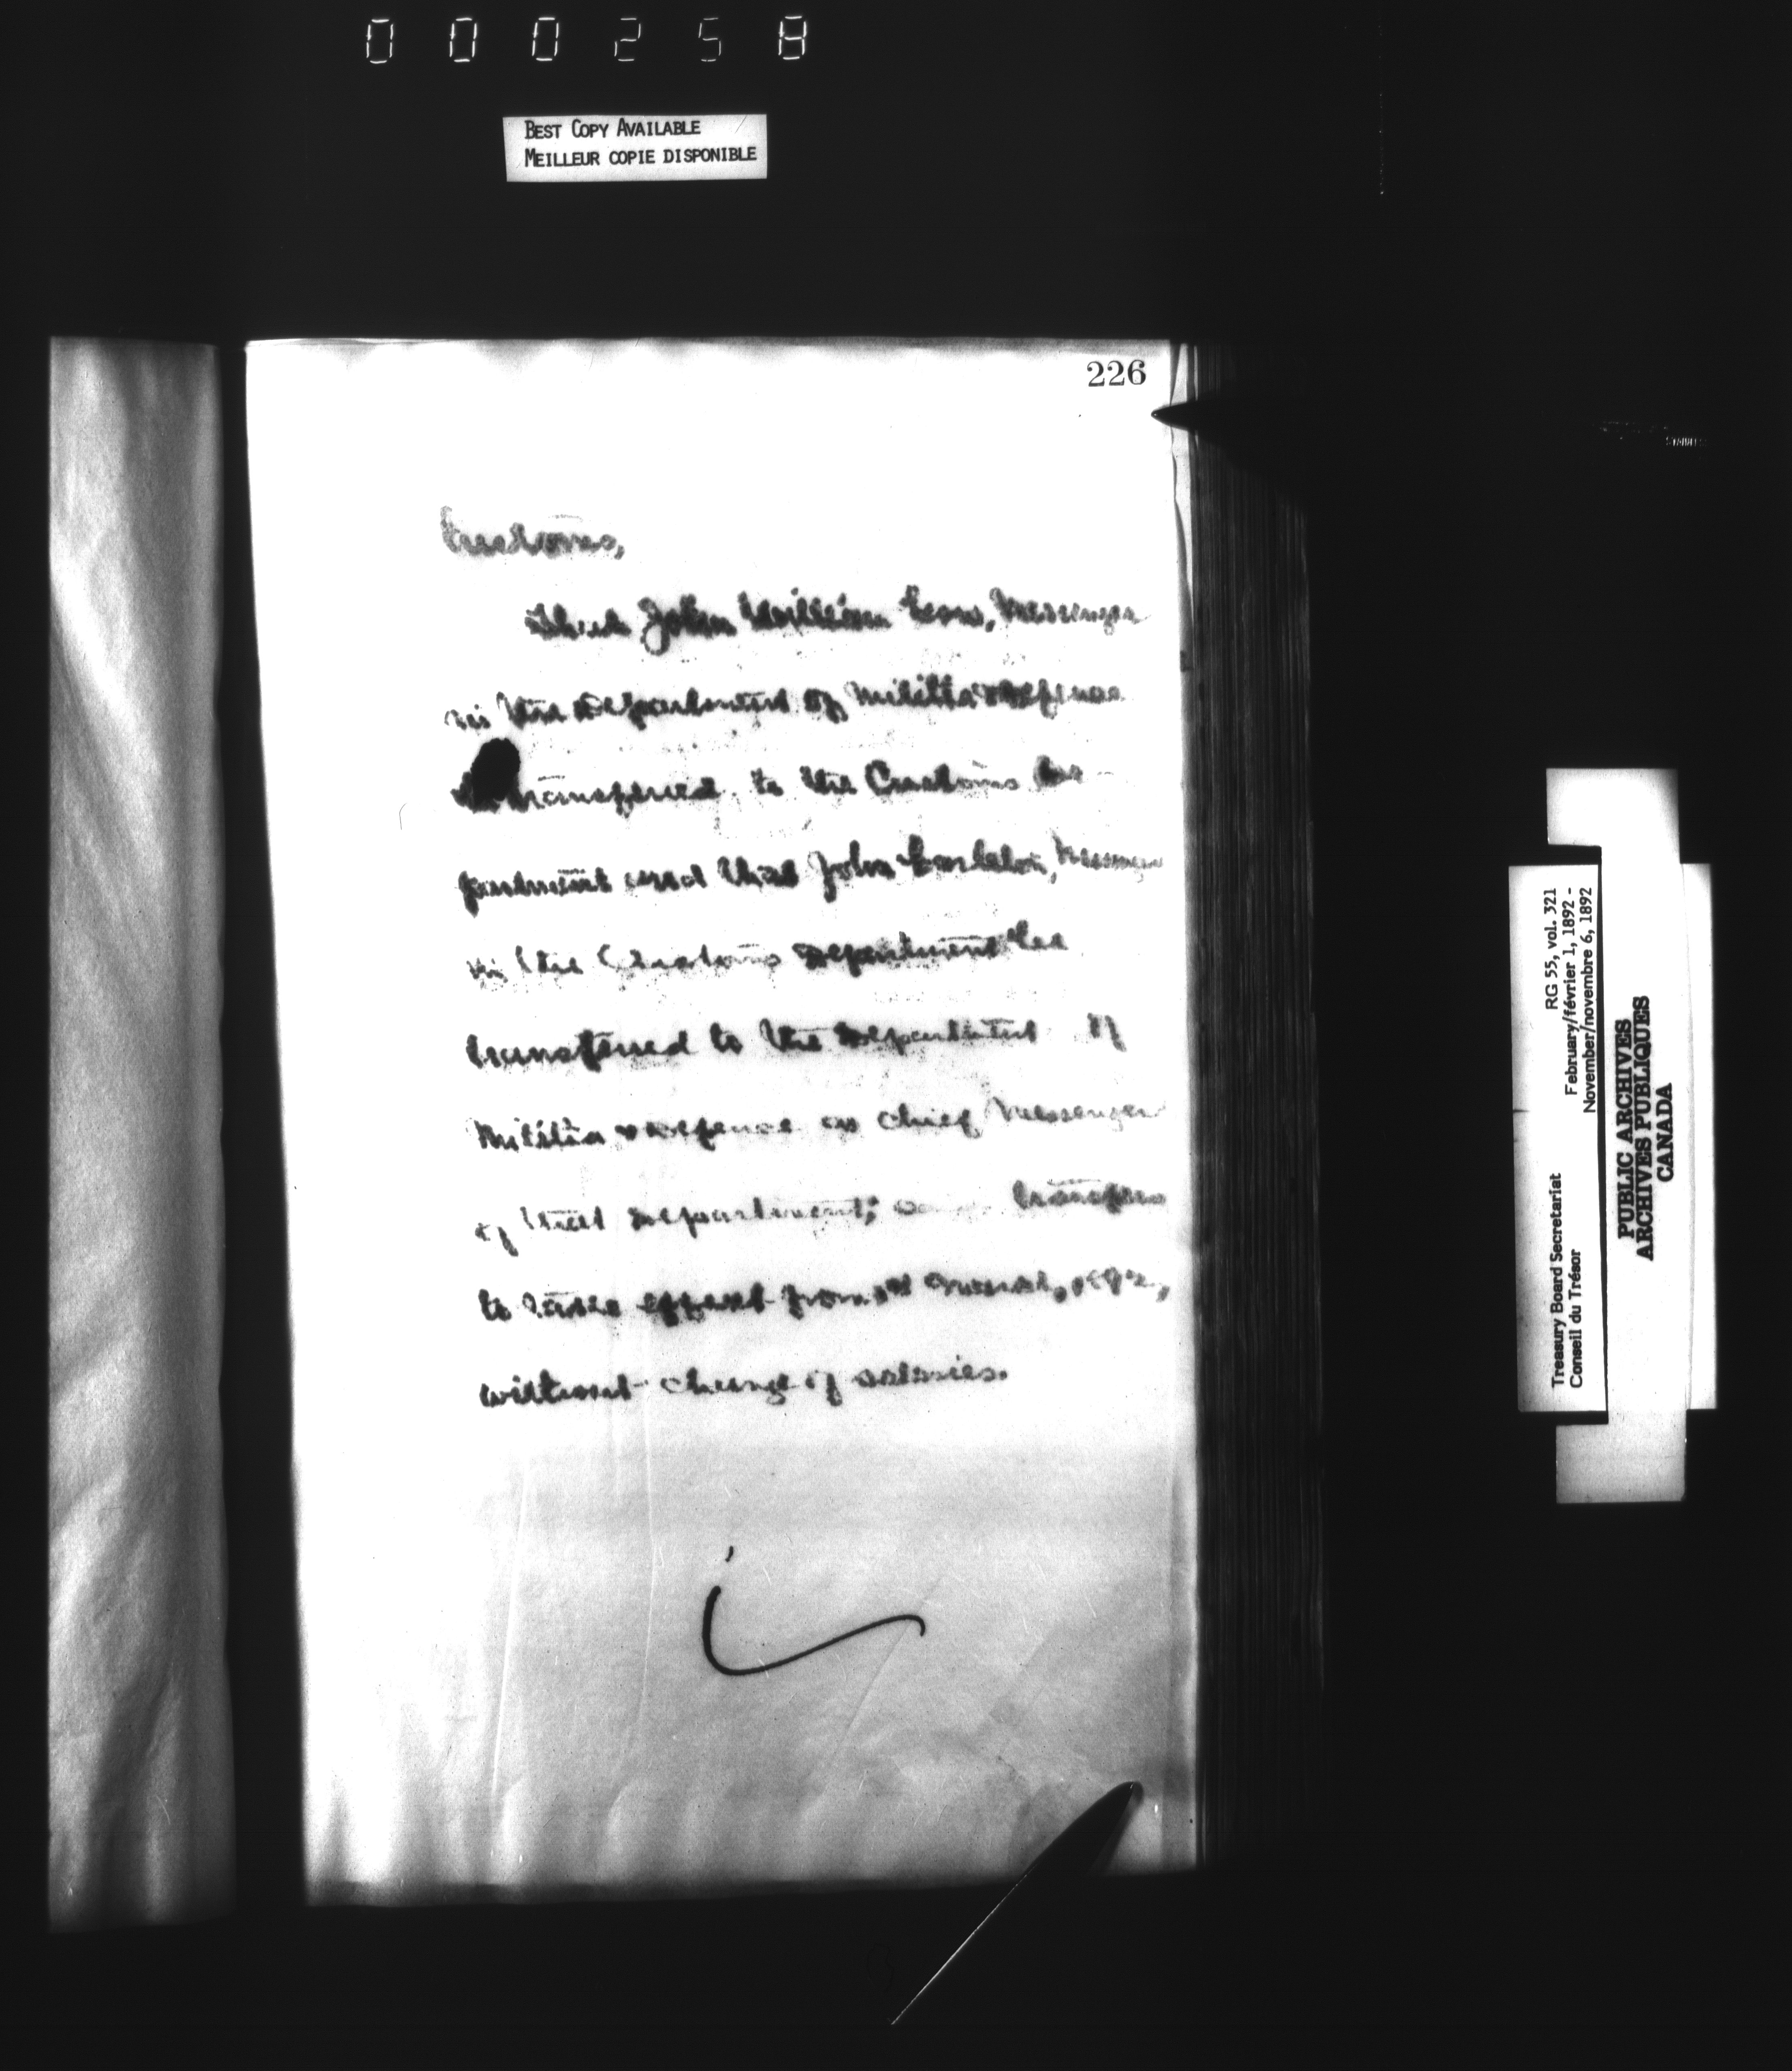 000258
BEST COPY AVAILABLE
MEILLEUR COPIE DISPONIBLE
226
Customs,
That John William Cow, Messenger
in the Department of Militia & Defence
transferred to the Customs De-
partment and that John Carleton, Messenger
in the Customs Department be
transferred to the Department of
Militia & Defence as chief Messenger
of that Department; transfers
to take effect from 1st 1892,
without change of salaries.
Treasury Board Secretariat RG 55, vol. 321
Conseil du Trésor February/février 1, 1892 -
November/novembre 6, 1892
PUBLIC ARCHIVES
ARCHIVES PUBLIQUES
CANADA